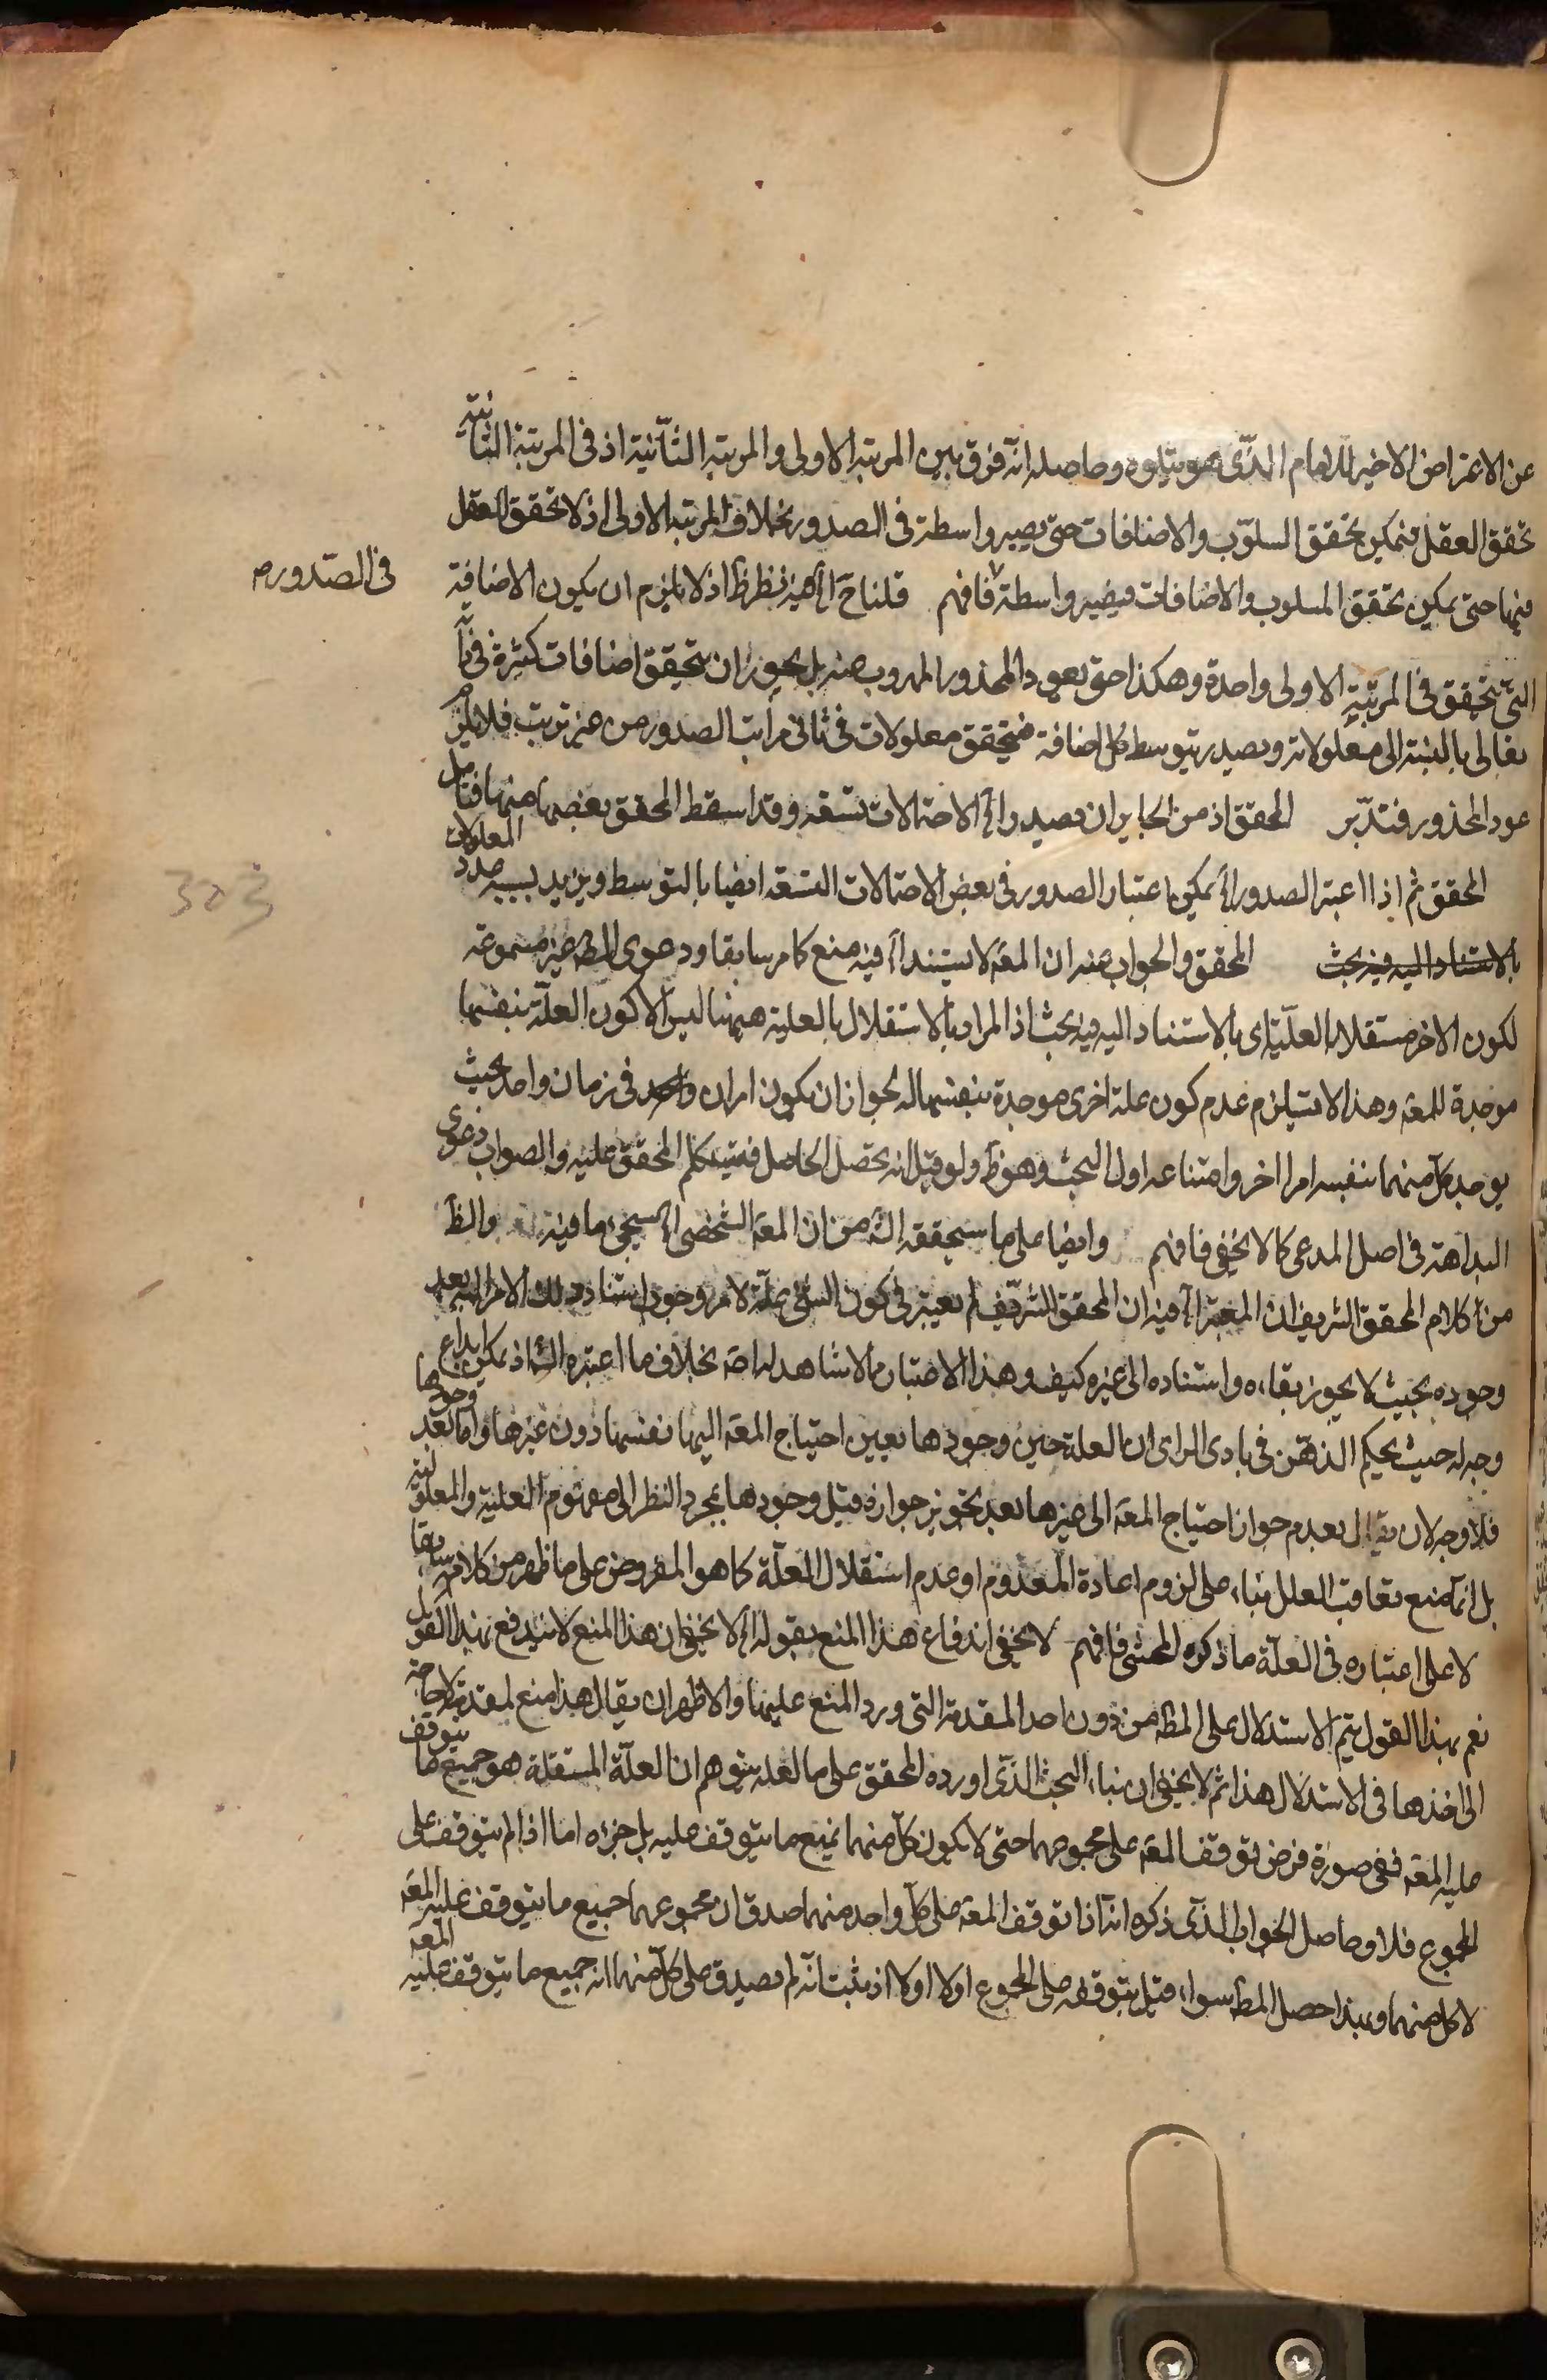 عن الاعتراض الاخير للامام الذى هو يتلوه وحاصله انه فرق بين المرتبة الاولى والمرتبة الثانية اذ فى المرتبة الثانية
تحقق العقل فيمكن تحقق السلوب والاضافات حتى يصير واسطة فى الصدور بخلاف المرتبة الاولى اذ لا تحقق العقل
فيها حتى يمكن تحقق السلوب والاضافات فيصير واسطة فافهم قلنا ح الخ فيه نظر ظ اذ لا يلزم ان يكون الاضافة
فى الصدور صه
التى تتحقق فى المرتبة الاولى واحدة وهكذا حتى يعود المحذور المهروب عنه بل يجوز ان يتحقق اضافات كثيرة
تعالى بالنسبة الى معلولاته ويصدر بتوسط كل اضافة فيتحقق معلولات فى ثانى مراتب الصدور من غير ترتب فلا يلزم
عود المحذور فتدبر المحقق اذ من الجايز ان يصدر الخ الاحتمالات تسعة وقد اسقط المحقق بعضها منها فتامل
المحقق ثم اذا اعتبر الصدور الخ يمكن اعتبار الصدور فى بعض الاحتمالات التسعة ايضا بالتوسط ويزيد بسببه عدد المعلولات
بالاستناد اليه فيه بحث المحقق والجواب عنه ان المعه لا يستند الخ فيه منع كما مر سابقا ودعوى الظ غير مسموعة
لكون الاخر مستقلا بالعلية اى بالاستناد اليه فيه بحث اذ المراد بالاستقلال بالعلية ههنا ليس الا كون العلة بنفسها
موجدة للمعه وهذا لا يستلزم عدم كون علة اخرى موجدة بنفسها له لجواز ان يكون امران واحد فى زمان واحد بحيث
يوجد كل منهما بنفسه امرا اخر وامتناعه اول البحث وهو ظ ولو قيل انه تحصل الحاصل فسيتكلم المحقق عليه والصواب دعوى
البداهة فى اصل المدعى كما لا يخفى فافهم وايضا على ما سيحققه الش من ان المعه الشخصى الخ سيجئ ما فيه والظ
من كلام المحقق الشريف ان المعتبر الخ فيه ان المحقق الشريف لم يعتبر فى كون الشئ علة لامر وجوب استناد ذلك الامر اليه بعد
وجوده بحيث لا يجوز بقاءه واستناده الى غيره كيف وهذا الاعتبار مما لا شاهد له اصه بخلاف ما اعتبره الش اذ يمكن ابداع
وجه له حيث يحكم الذهن فى بادى الراى ان العلة حين وجودها يعين احتياج المعه اليها نفسها دون غيرها واما بعد وجودها
فلا وجه لان يقال بعدم جواز احتياج المعه الى غيرها بعد تجويز جوازه قبل وجودها بمجرد النظر الى مفهوم العلية والمعلولية
بل انما منع تعاقب العلل بناء على لزوم اعادة المعدوم او عدم استقلال العلة كما هو المفروض على ما ظهر من كلامه سابقا
لا على اعتباره فى العلة ما ذكره المحشى فافهم لا يخفى اندفاع هذا المنع بقوله الخ لا يخفى ان هذا المنع لا يندفع بهذا القول
نعم بهذا القول يتم الاستدلال على المط من دون اخذ المقدمة التى ورد المنع عليها والاظهر ان يقال هذا منع لمقدمة لا حاجة
الى اخذها فى الاستدلال هذا ثم لا يخفى ان بناء البحث الذى اورده المحقق على ما لعله يتوهم ان العلة المستقلة هو جميع ما يتوقف
عليه المعه ففى صورة فرض توقف المعه على مجموعهما حتى لا يكون كل منهما جميع ما يتوقف عليه بل جزءه اما اذا لم يتوقف على
المجموع فلا وحاصل الجواب الذى ذكره انه اذا توقف المعه على كل واحد منهما صدق ان مجموعهما جميع ما يتوقف عليه المعه
لا كل منهما وبهذا حصل المط سواء قيل بتوقفه على المجموع اولا اولا اذ يثبت انه لم يصدق على كل منهما انه جميع ما يتوقف عليه المعه
303